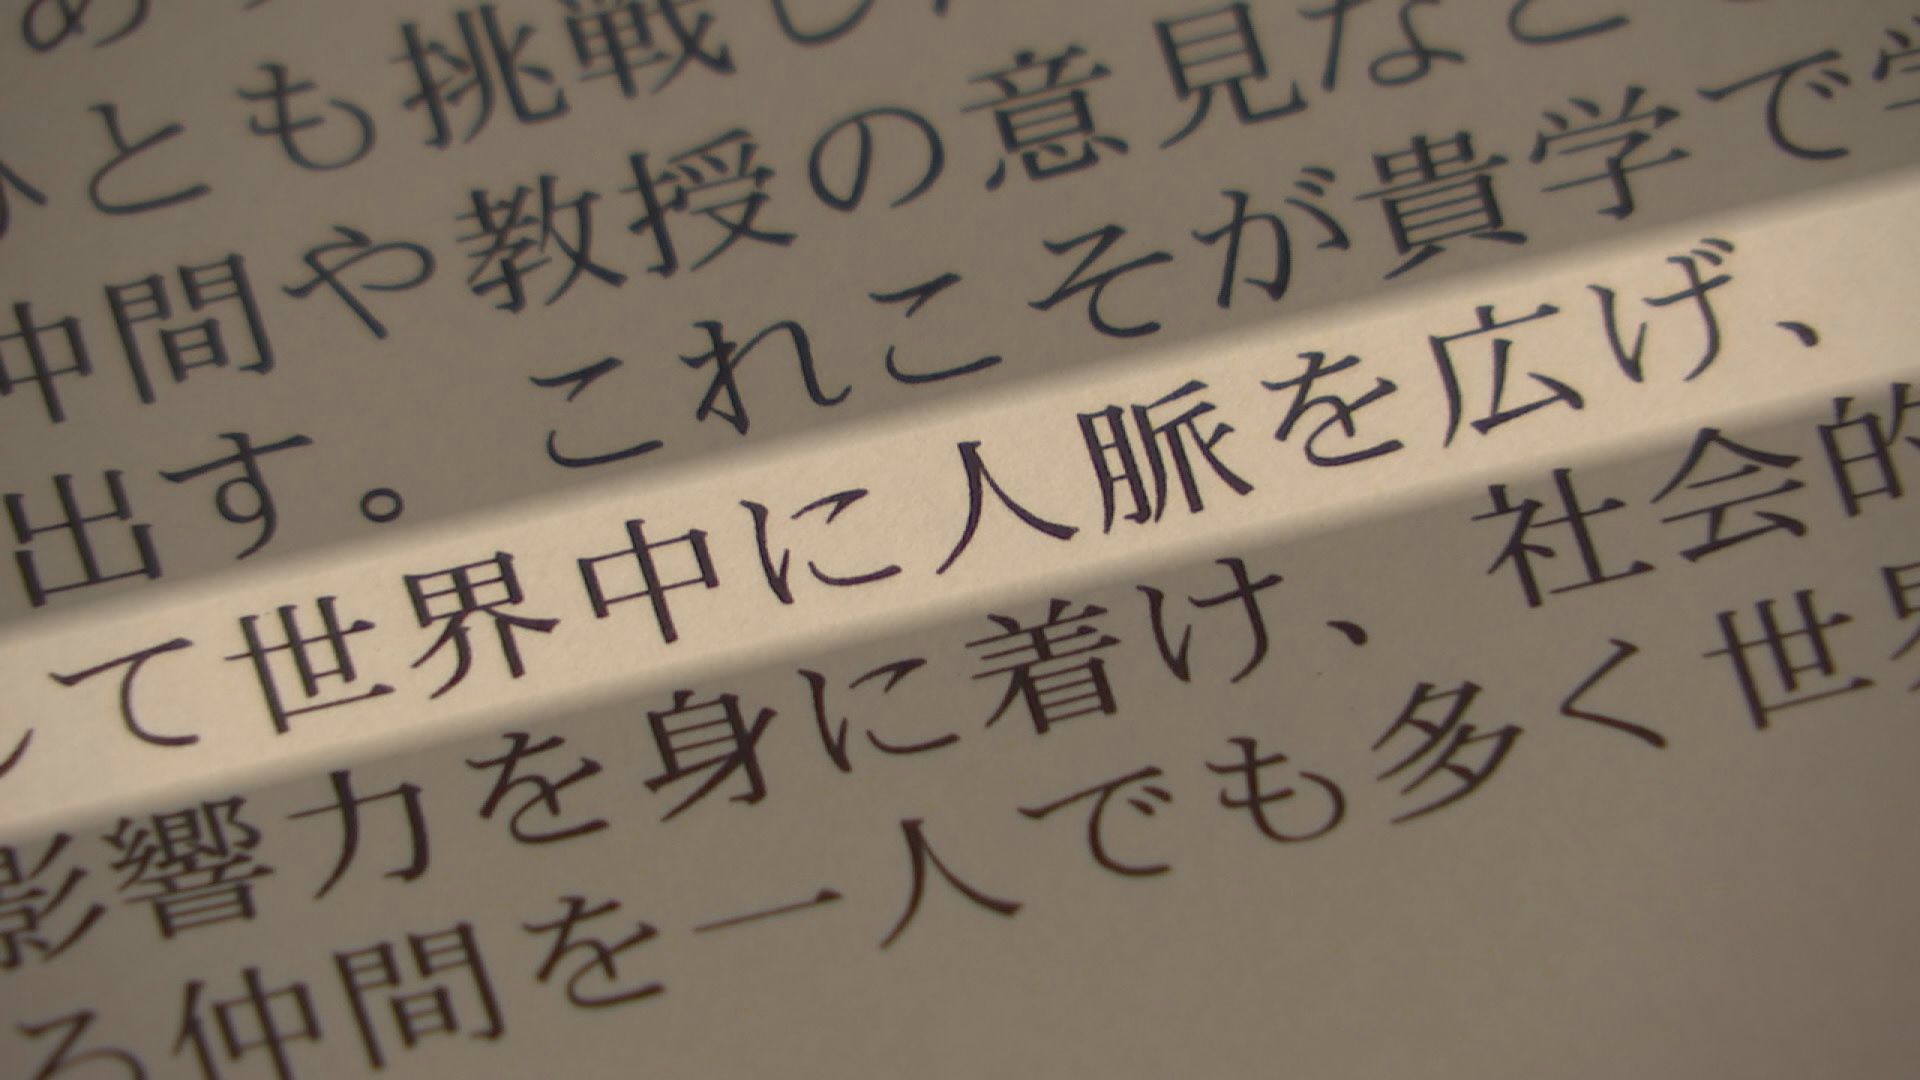 とも挑戦し
仲間や教授の意見など
出す。これこそが貴学で学
して世界中に人脈を広げ、
影響力を身に着け、社会的
る仲間を一人でも多く世界